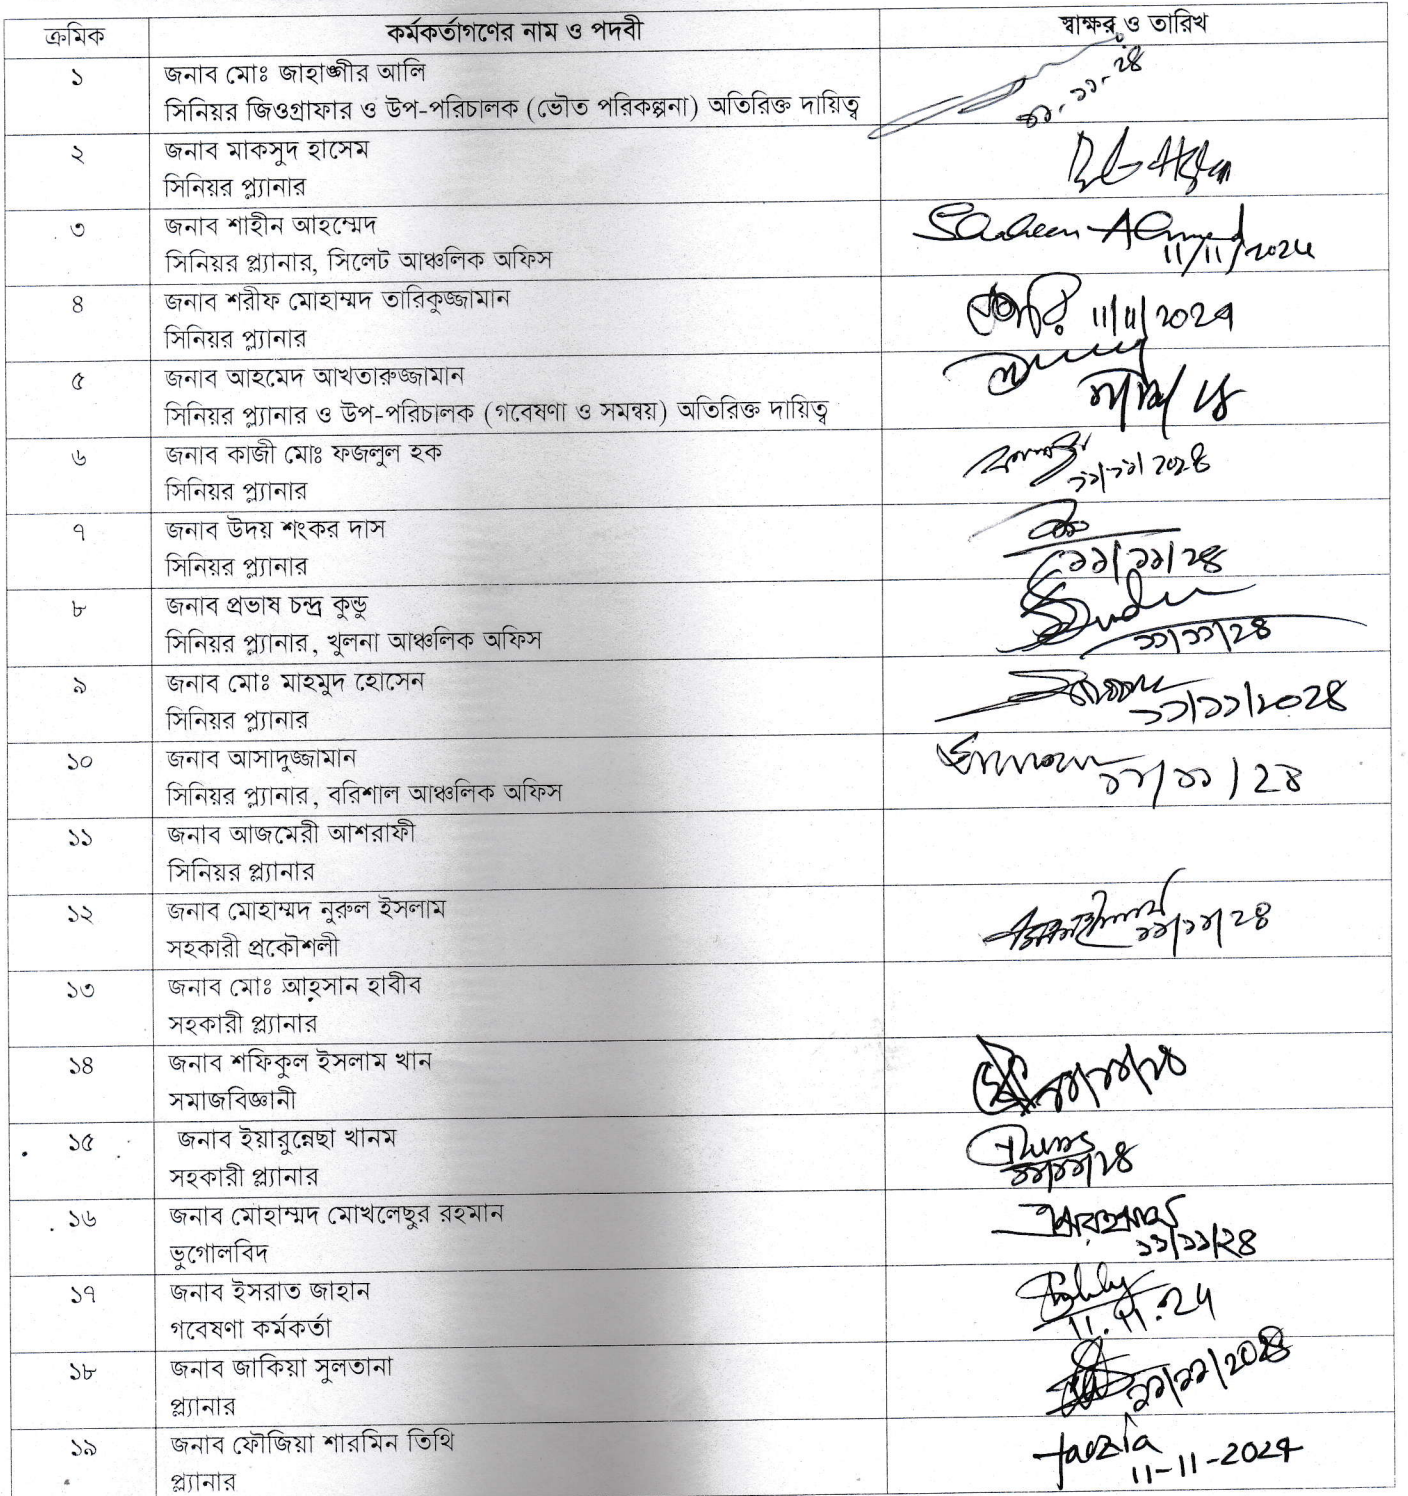 ক্রমিক কর্মকর্তাগণের নাম ও পদবী স্বাক্ষর ও তারিখ
১ জনাব মোঃ জাহাঙ্গীর আলি
সিনিয়র জিওগ্রাফার ও উপ-পরিচালক (ভৌত পরিকল্পনা) অতিরিক্ত দায়িত্ব
২ জনাব মাকসুদ হাসেম
সিনিয়র প্ল্যানার
৩ জনাব শাহীন আহম্মেদ Shaheen Ahmed
সিনিয়র প্ল্যানার, সিলেট আঞ্চলিক অফিস 11/11/2024
৪ জনাব শরীফ মোহাম্মদ তারিকুজ্জামান 11/11/2024
সিনিয়র প্ল্যানার
৫ জনাব আহমেদ আখতারুজ্জামান
সিনিয়র প্ল্যানার ও উপ-পরিচালক (গবেষণা ও সমন্বয়) অতিরিক্ত দায়িত্ব
৬ জনাব কাজী মোঃ ফজলুল হক
সিনিয়র প্ল্যানার ১১/১১/২০২৪
৭ জনাব উদয় শংকর দাস
সিনিয়র প্ল্যানার ১১/১১/২৪
৮ জনাব প্রভাষ চন্দ্র কুন্ডু
সিনিয়র প্ল্যানার, খুলনা আঞ্চলিক অফিস ১১/১১/২৪
৯ জনাব মোঃ মাহমুদ হোসেন
সিনিয়র প্ল্যানার ১১/১১/২০২৪
১০ জনাব আসাদুজ্জামান
সিনিয়র প্ল্যানার, বরিশাল আঞ্চলিক অফিস ১১/১১/২৪
১১ জনাব আজমেরী আশরাফী
সিনিয়র প্ল্যানার
১২ জনাব মোহাম্মদ নুরুল ইসলাম
সহকারী প্রকৌশলী ১১/১১/২৪
১৩ জনাব মোঃ আহসান হাবীব
সহকারী প্ল্যানার
১৪ জনাব শফিকুল ইসলাম খান
সমাজবিজ্ঞানী ১১/১১/২৪
১৫ জনাব ইয়ারুন্নেছা খানম
সহকারী প্ল্যানার ১১/১১/২৪
১৬ জনাব মোহাম্মদ মোখলেছুর রহমান
ভুগোলবিদ ১১/১১/২৪
১৭ জনাব ইসরাত জাহান
গবেষণা কর্মকর্তা 11.11.24
১৮ জনাব জাকিয়া সুলতানা
প্ল্যানার ১১/১১/২০২৪
১৯ জনাব ফৌজিয়া শারমিন তিথি faozia
প্ল্যানার 11-11-2024